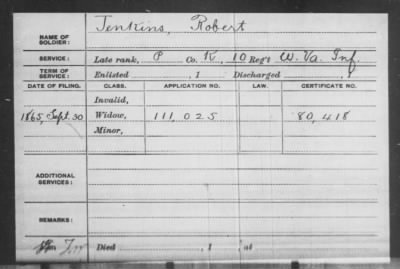 NAME OF SOLDIER: Jenkins, Robert
SERVICE: Late rank, P Co. K, 10 Reg't W. Va. Inf.
TERM OF SERVICE: Enlisted , 1 Discharged , 1
DATE OF FILING. CLASS. APPLICATION NO. LAW. CERTIFICATE NO.
Invalid,
1865, Sept. 30 Widow, 111,025 80,418
Minor,
ADDITIONAL SERVICES:
REMARKS:
Died , 1 , at